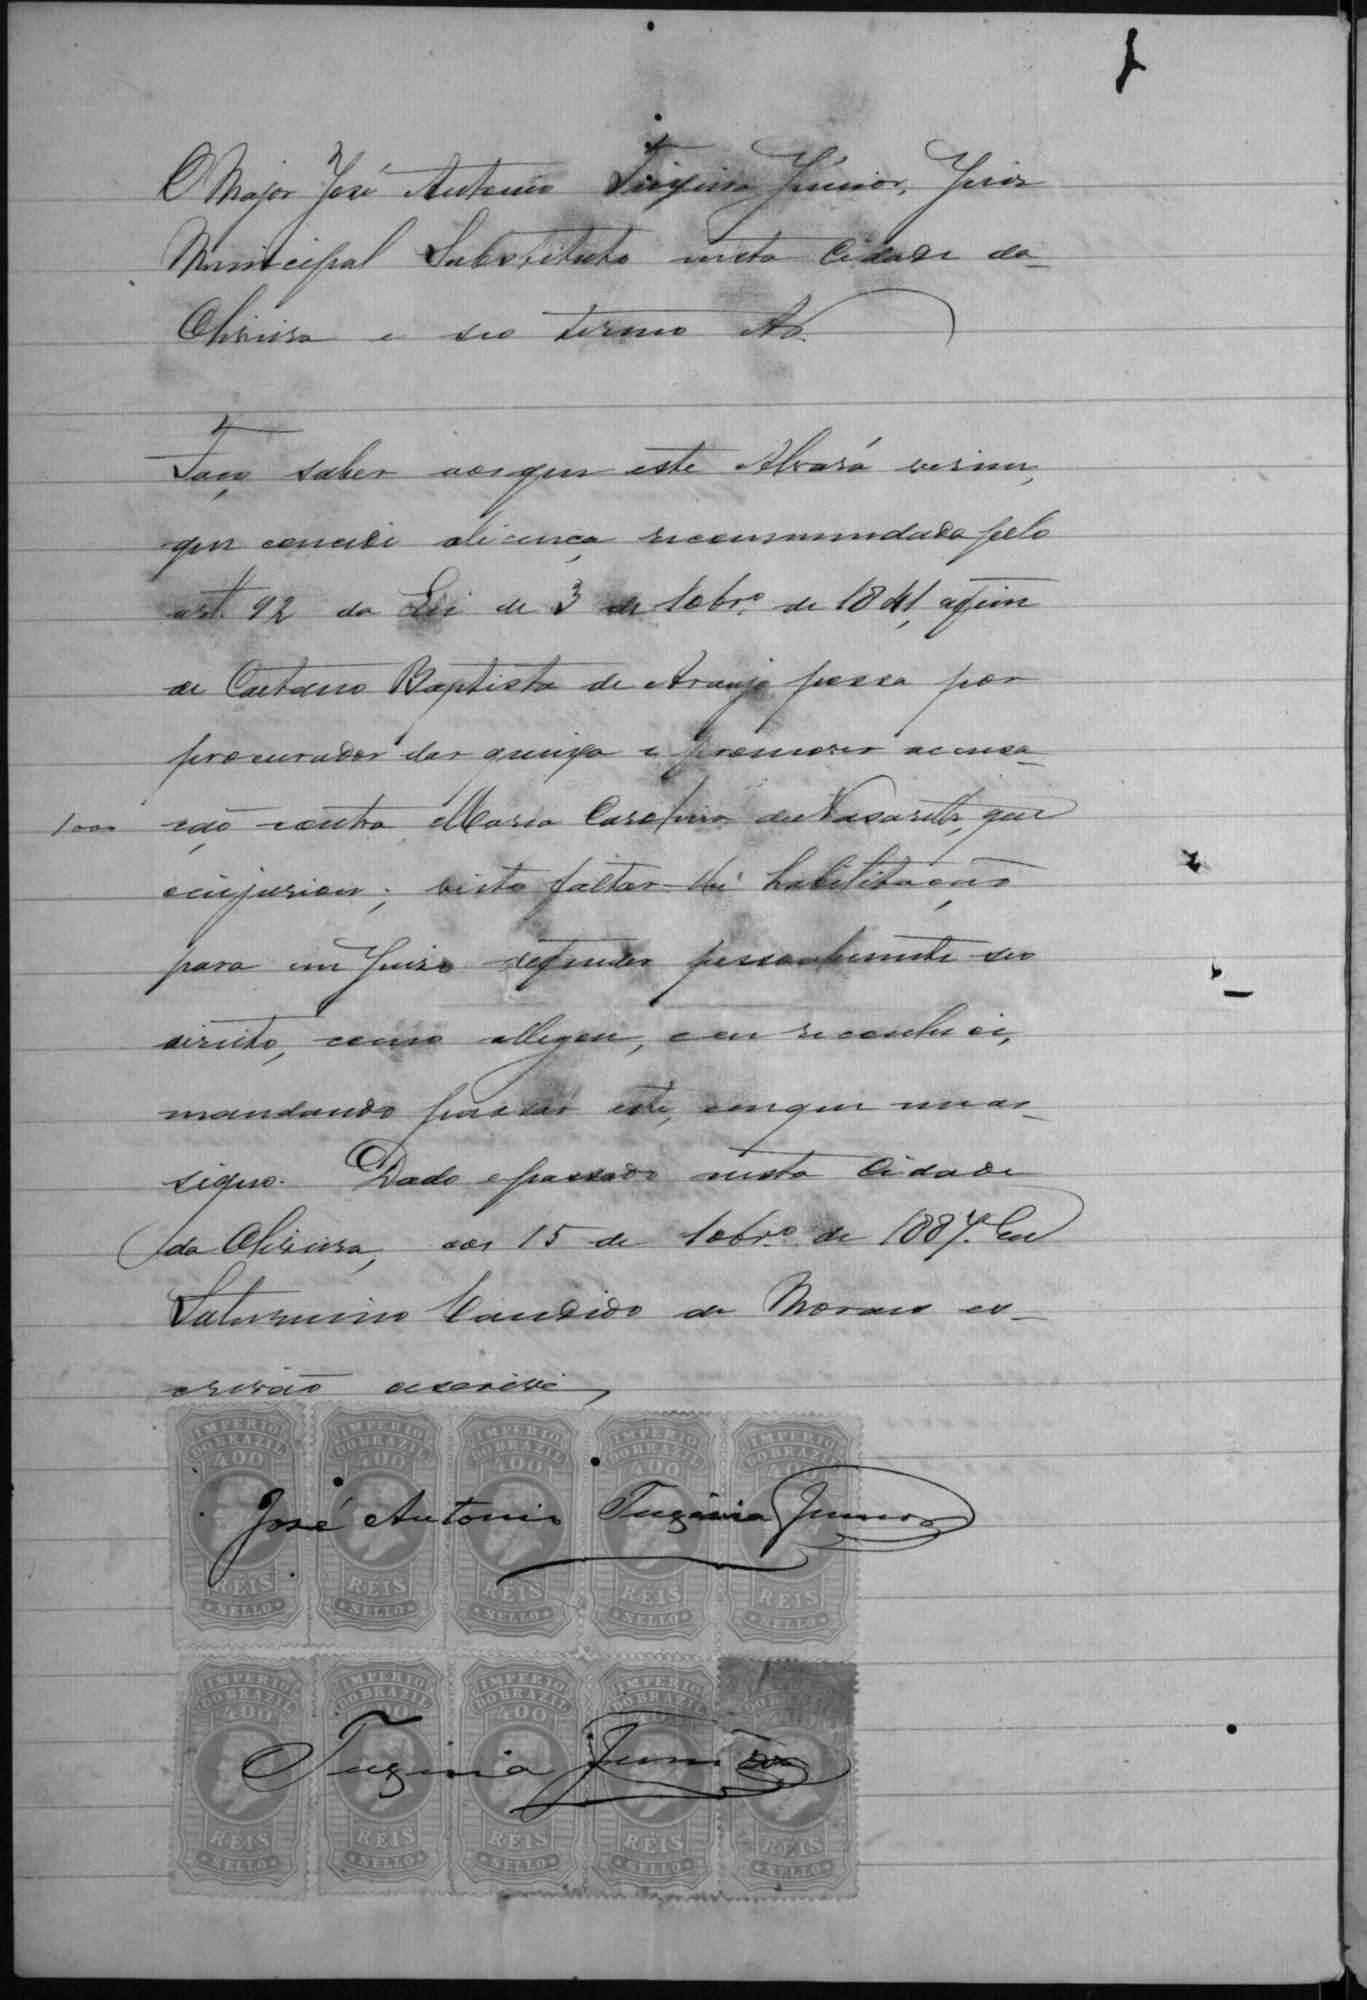 O Major José Antonio Teixeira Júnior, Juiz
Municipal Substituto nesta Cidade da
Oliveira e seo termo &.
Faço saber aos que este Alvará virem,
que concedi alicença recommendada pelo
art. 92 da Lei de 3 de 10br.º de 1841, afim
de Caetano Baptista de Araujo possa por
procurador dar queixa e promover accusa-
1000 ção contra Maria Carolina de Nasareth, que
oinjuriou; visto faltar-lhe habilitação
para em Juizo defender pessoalmente seo
direito, como allegou, e eu reconheci,
mandando passar este, emque me as-
signo. Dado epassado nesta Cidade
da Oliveira, aos 15 de 10br.º de 1887. Eu
Saturnino Candido de Moraes es-
crivão oescrevi,
IMPERIO DO BRAZIL 400 RÉIS SELLO
IMPERIO DO BRAZIL 400 RÉIS SELLO
IMPERIO DO BRAZIL 400 RÉIS SELLO
IMPERIO DO BRAZIL 400 RÉIS SELLO
IMPERIO DO BRAZIL 400 RÉIS SELLO
José Antonio Teixeira Junior
IMPERIO DO BRAZIL 400 RÉIS SELLO
IMPERIO DO BRAZIL 400 RÉIS SELLO
IMPERIO DO BRAZIL 400 RÉIS SELLO
IMPERIO DO BRAZIL 400 RÉIS SELLO
DO BRAZIL 400 RÉIS SELLO
Teixeira Junior